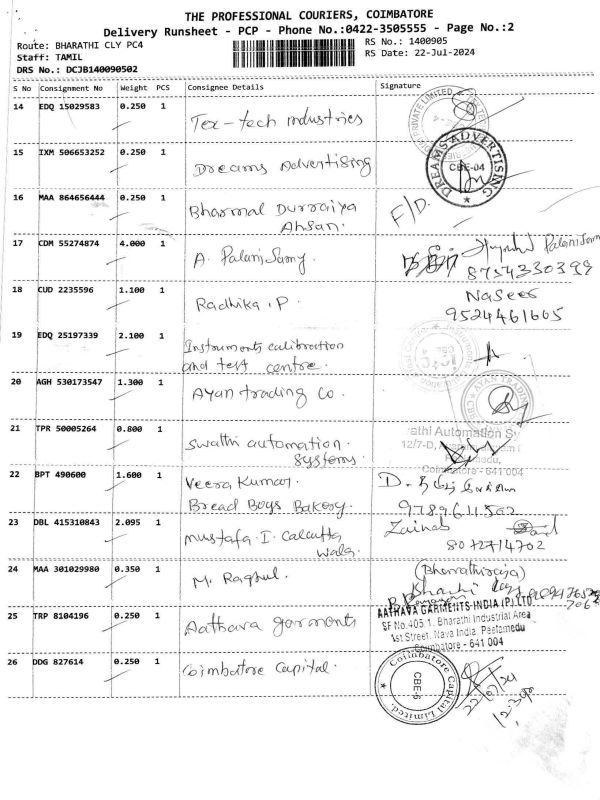 THE PROFESSIONAL COURIERS, COIMBATORE
Delivery Runsheet - PCP - Phone No.:0422-3505555 - Page No.:2
Route: BHARATHI CLY PC4
RS No.: 1400905
Staff: TAMIL
RS Date: 22-Jul-2024
DRS No.: DCJB140090502
S No Consignment No Weight PCS Consignee Details Signature
14 EDQ 15029583 0.250 1 Tex-tech industries
15 IXM 506653252 0.250 1 Dreams Advertising
DREAMS ADVERTISING
CBE-04
16 MAA 864656444 0.250 1 Bharmal Durraiya F/D.
Ahsan.
17 CDM 55274874 4.000 1 A. Palanisamy Palanisamy
8754330399
18 CUD 2235596 1.100 1 Radhika.P Naseer
9524461605
19 EDQ 25197339 2.100 1 Instruments calibration
and test centre.
20 AGH 530173547 1.300 1 Ayan trading Co.
AYAN TRADING
21 TPR 50005264 0.800 1 swathi automation.
systems.
athi Automation Sy
12/7-D,
Coimbatore - 641 004
22 BPT 490600 1.600 1 Veera Kumar. D.
Bread Boys Bakery. 9789611502
23 DBL 415310843 2.095 1 mustafa.I. Calcutta Zainab
wala. 8072714702
24 MAA 301029980 0.350 1 M. Raghul. (Bharathiraja)
25 TRP 8104196 0.250 1 Aathava garments
AATHAVA GARMENTS INDIA (P) LTD
SF No.405/1, Bharathi Industrial Area
1st Street, Nava India, Peelamedu
Coimbatore - 641 004
26 DDG 827614 0.250 1 Coimbatore Capital.
Coimbatore Capital Limited.
CBE-6
22/07/24
12.30p